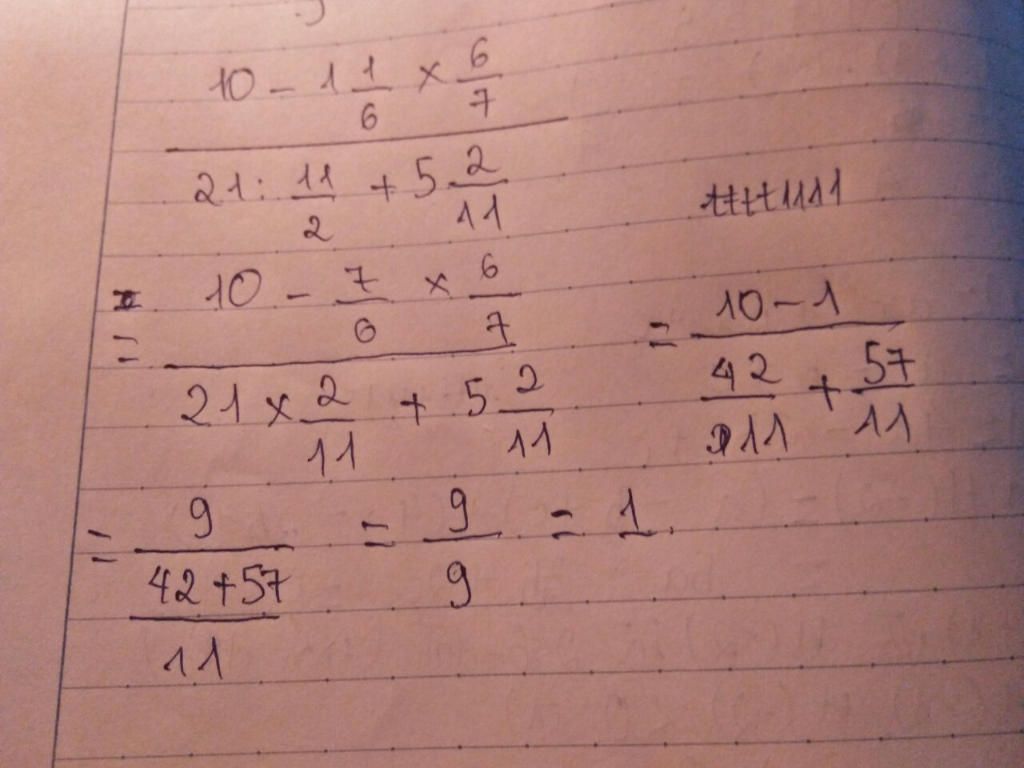 10 - 1 1/6 × 6/7
21 : 11/2 + 5 2/11
= 10 - 7/6 × 6/7
21 × 2/11 + 5 2/11
= 10 - 1
42/11 + 57/11
= 9
42 + 57
11
= 9/9 = 1